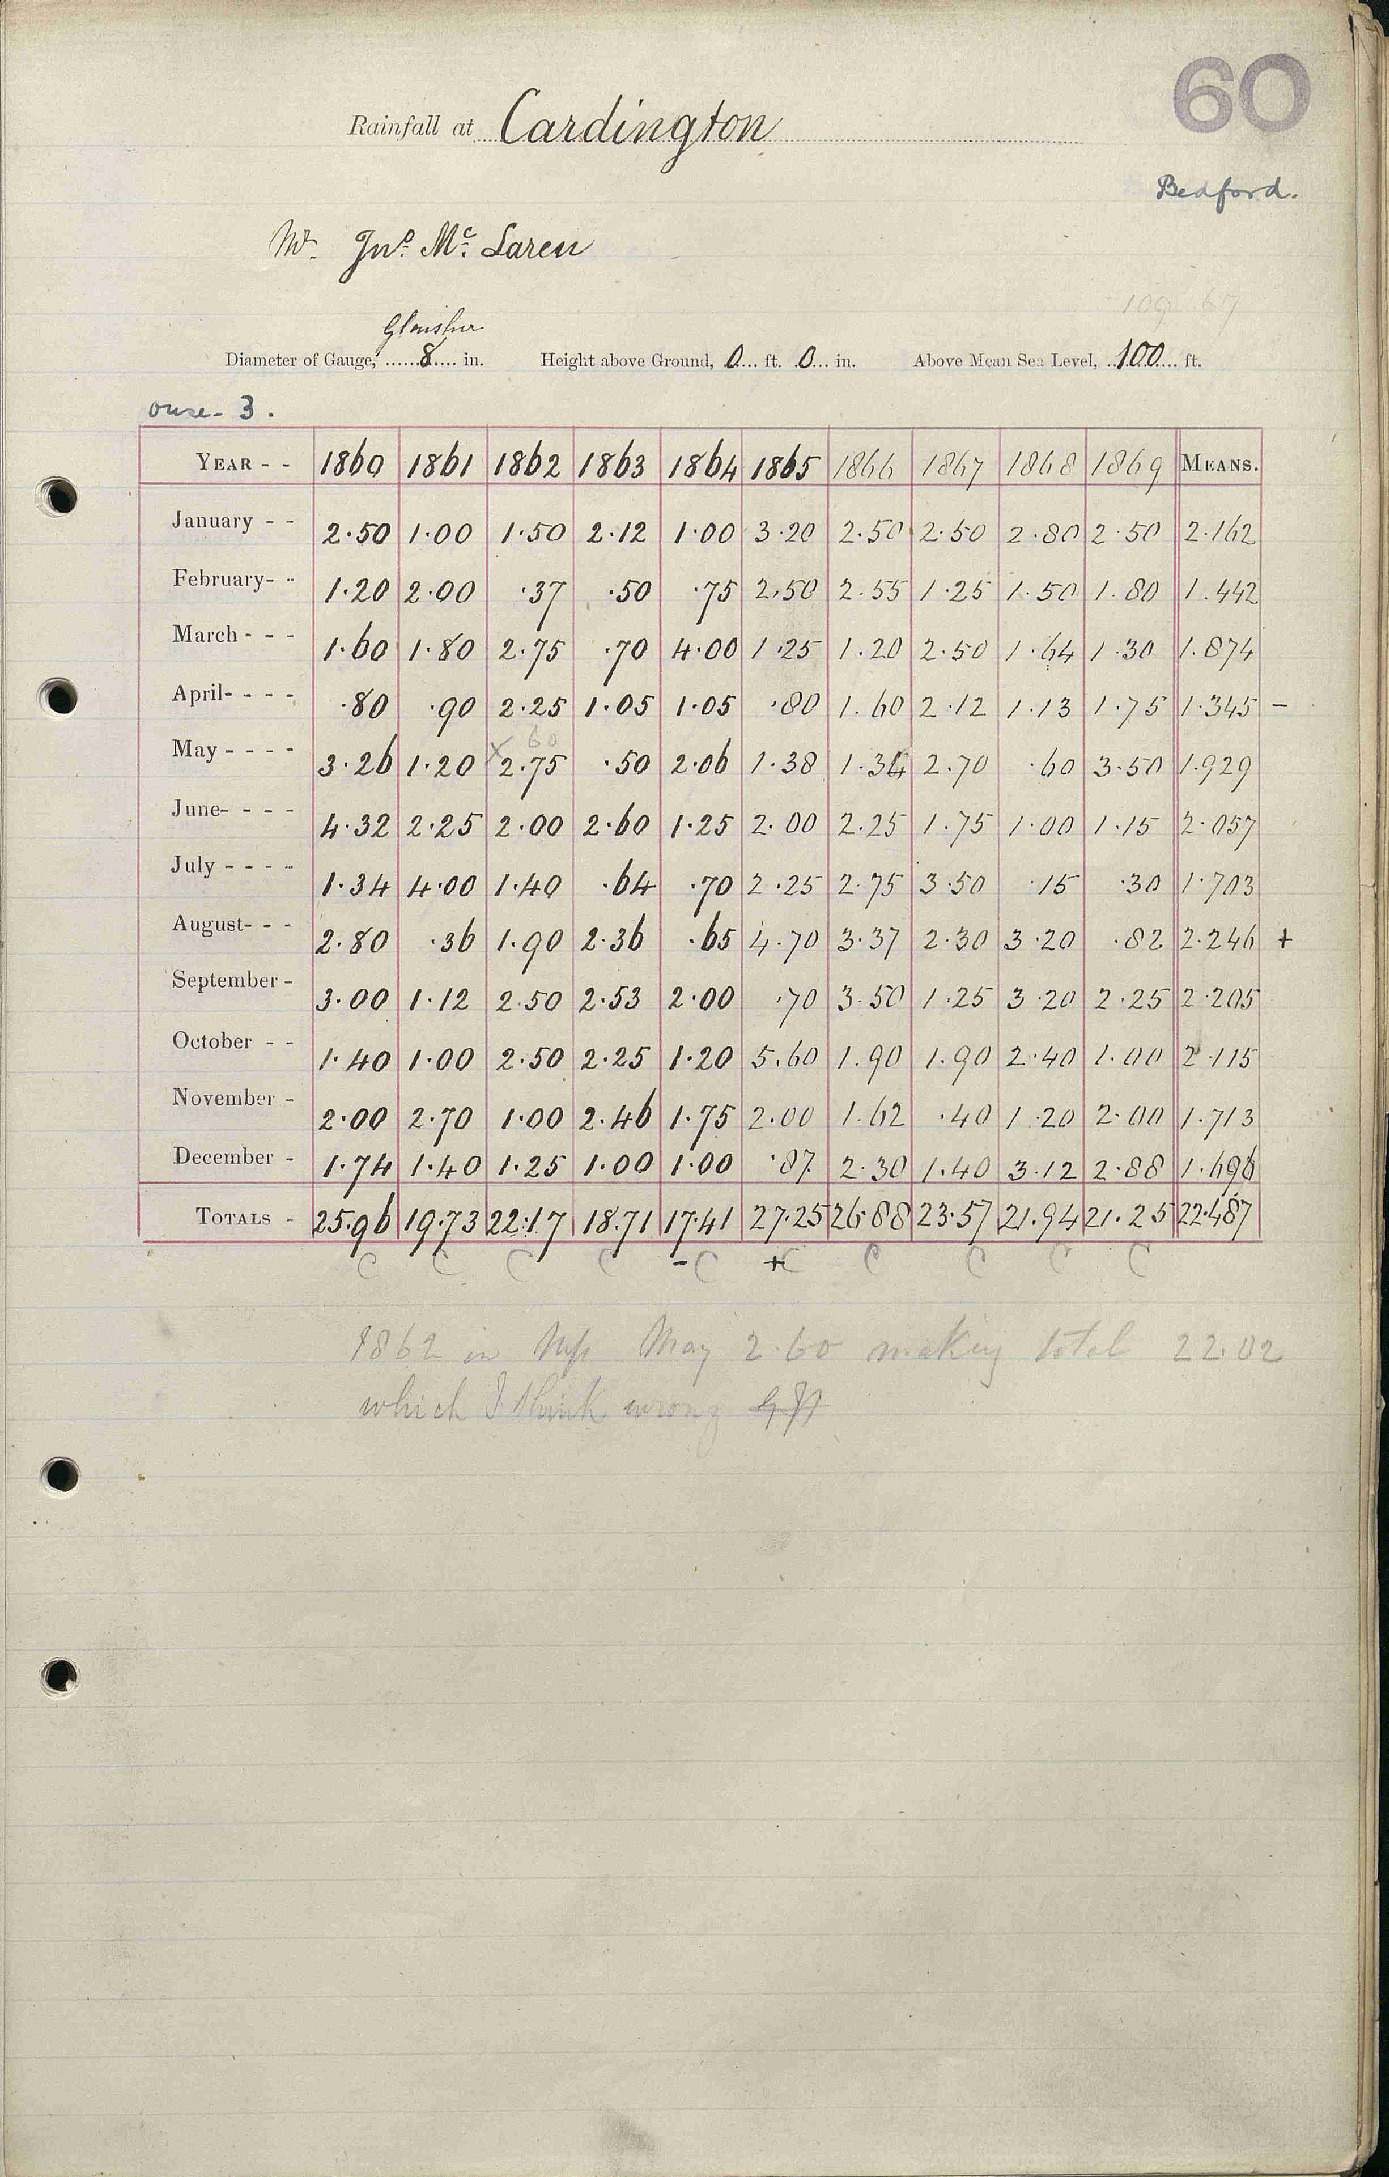 60
Rainfall at Cardington
Bedford.
Mr. Jno. Mc. Laren
109 67
Glaisher
Diameter of Gauge, 8 in. Height above Ground, 0 ft. 0 in. Above Mean Sea Level, 100 ft.
Ouse - 3.
YEAR - - 1860 1861 1862 1863 1864 1865 1866 1867 1868 1869 MEANS.
January - - 2.50 1.00 1.50 2.12 1.00 3.20 2.50 2.50 2.80 2.50 2.162
February- - 1.20 2.00 .37 .50 .75 2.50 2.55 1.25 1.50 1.80 1.442
March - - - 1.60 1.80 2.75 .70 4.00 1.25 1.20 2.50 1.64 1.30 1.874
April- - - - .80 .90 2.25 1.05 1.05 .80 1.60 2.12 1.13 1.75 1.345 -
60
May - - - - 3.26 1.20 x 2.75 .50 2.06 1.38 1.34 2.70 .60 3.50 1.929
June- - - - 4.32 2.25 2.00 2.60 1.25 2.00 2.25 1.75 1.00 1.15 2.057
July - - - - 1.34 4.00 1.40 .64 .70 2.25 2.75 3.50 .15 .30 1.703
August- - - 2.80 .36 1.90 2.36 .65 4.70 3.37 2.30 3.20 .82 2.246 +
September - 3.00 1.12 2.50 2.53 2.00 .70 3.50 1.25 3.20 2.25 2.205
October - - 1.40 1.00 2.50 2.25 1.20 5.60 1.90 1.90 2.40 1.00 2.115
November - 2.00 2.70 1.00 2.46 1.75 2.00 1.62 .40 1.20 2.00 1.713
December - 1.74 1.40 1.25 1.00 1.00 .87 2.30 1.40 3.12 2.88 1.696
TOTALS - 25.96 19.73 22.17 18.71 17.41 27.25 26.88 23.57 21.94 21.25 22.487
C C C C - C + C C C C C
1862 in MS May 2.60 making total 22.02
which I think wrong